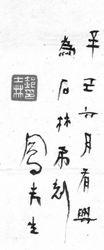 辛丑六月有興
為石林弟刻
鳳先生